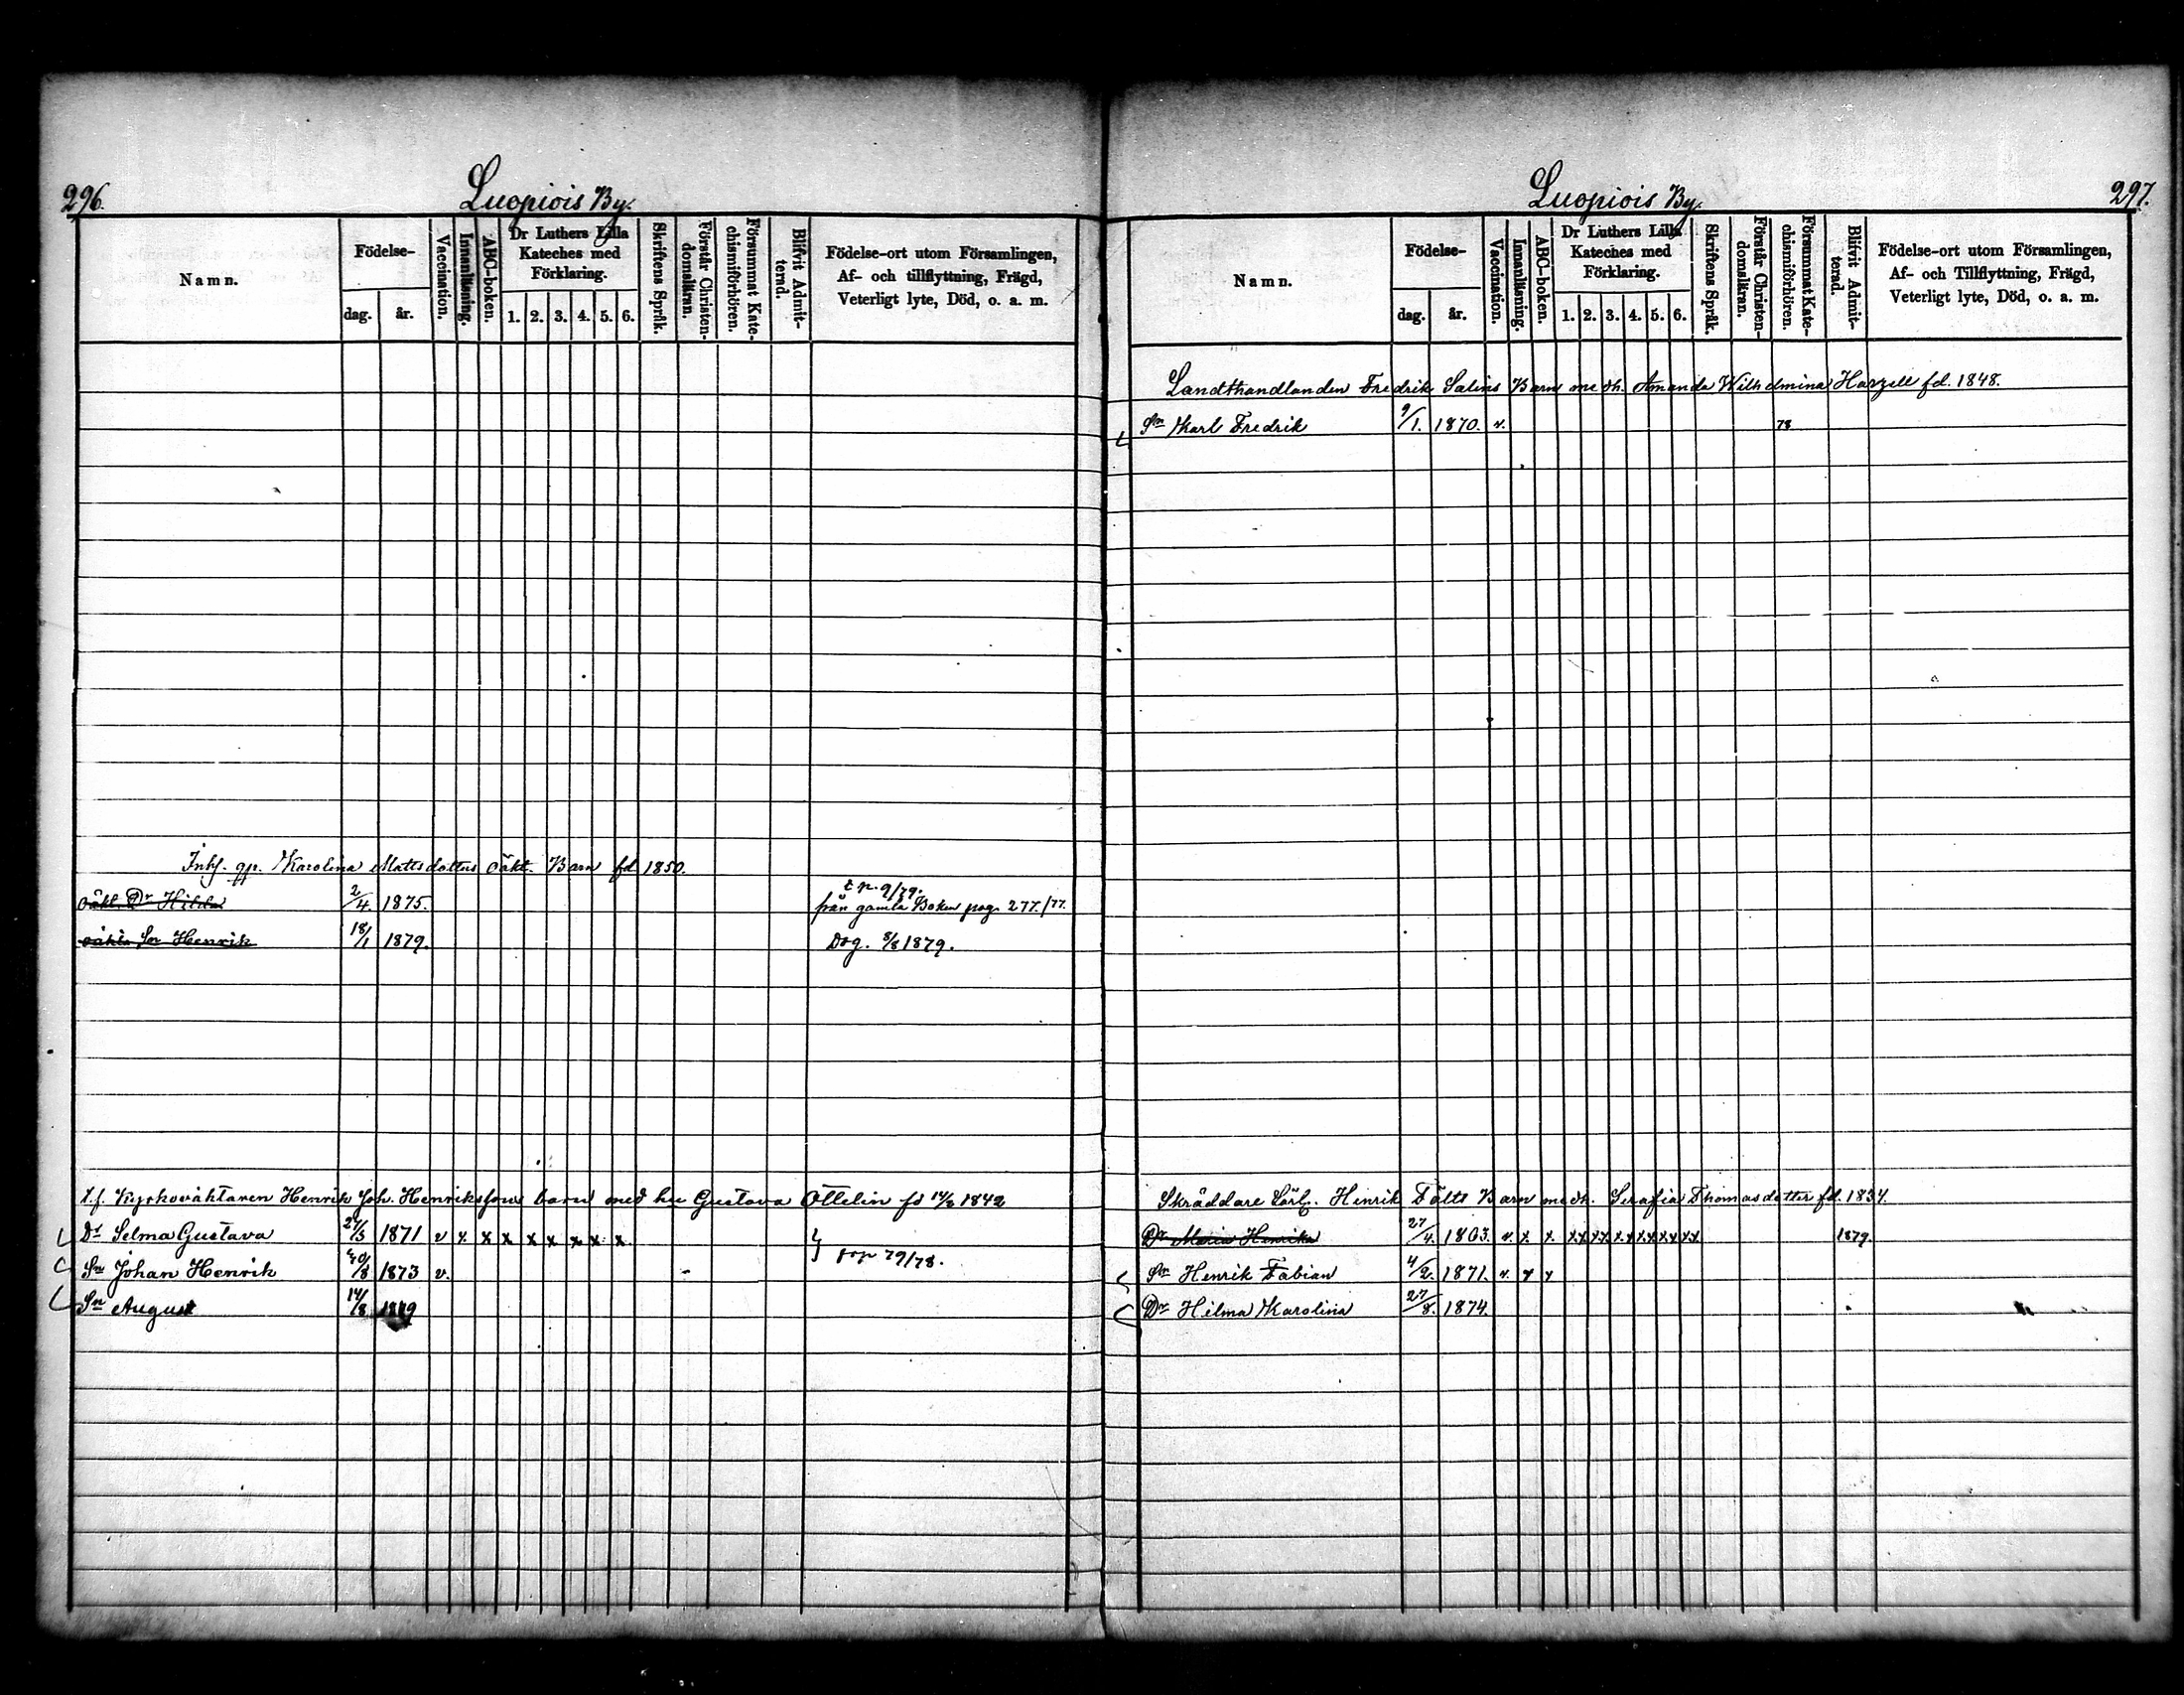 296.
Luopiois By.
Namn.
Födelse-
dag.
år.
Vaccination.
Innanläsning.
ABC-boken.
Dr Luthers Lilla Kateches med Förklaring.
1. 2. 3. 4. 5. 6.
Skriftens Språk.
Förstår Christen-domsläran.
Försummat Kate-chismiförhören.
Blifvit Admit-terad.
Födelse-ort utom Församlingen,
Af- och tillflyttning, Frägd,
Veterligt lyte, Död, o. a. m.
Inhs. qp. Karolina Mattsdotters oäkt. Barn fd 1850.
oäkt. Dr Hilda 2/4. 1875. t p. 9/79. från gamla Boken pag. 277./77.
oäkta Sn Henrik 18/1 1879. Dog. 8/8 1879.
Kyrkovaktaren Henrik Joh. Henrikssons barn med hu Gustava Ottelin fd 1842
Dr Selma Gustava 27/3 1871 v x x x x x x x x
Sn Johan Henrik 1873 v. 79/78.
Sn August 14/8 1879
297.
Luopiois By.
Namn.
Födelse-
dag.
år.
Vaccination.
Innanläsning.
ABC-boken.
Dr Luthers Lilla Kateches med Förklaring.
1. 2. 3. 4. 5. 6.
Skriftens Språk.
Förstår Christen-domsläran.
Försummat Kate-chismiförhören.
Blifvit Admit-terad.
Födelse-ort utom Församlingen,
Af- och Tillflyttning, Frägd,
Veterligt lyte, Död, o. a. m.
Landthandlanden Fredrik Salins Barn med h. Amanda Wilhelmina fd. 1848.
Sn Karl Fredrik 9/1. 1870. v. 78
Skräddare Henrik Fälts Barn med h. Serafia Thomasdotter fd. 1834.
Dr Maria Henrika 27/4. 1863. v. x. x. xx xx xx xx xx xx 1879
Sn Henrik Fabian 4/2. 1871. v. x x
Dr Hilma Karolina 27/8. 1874.